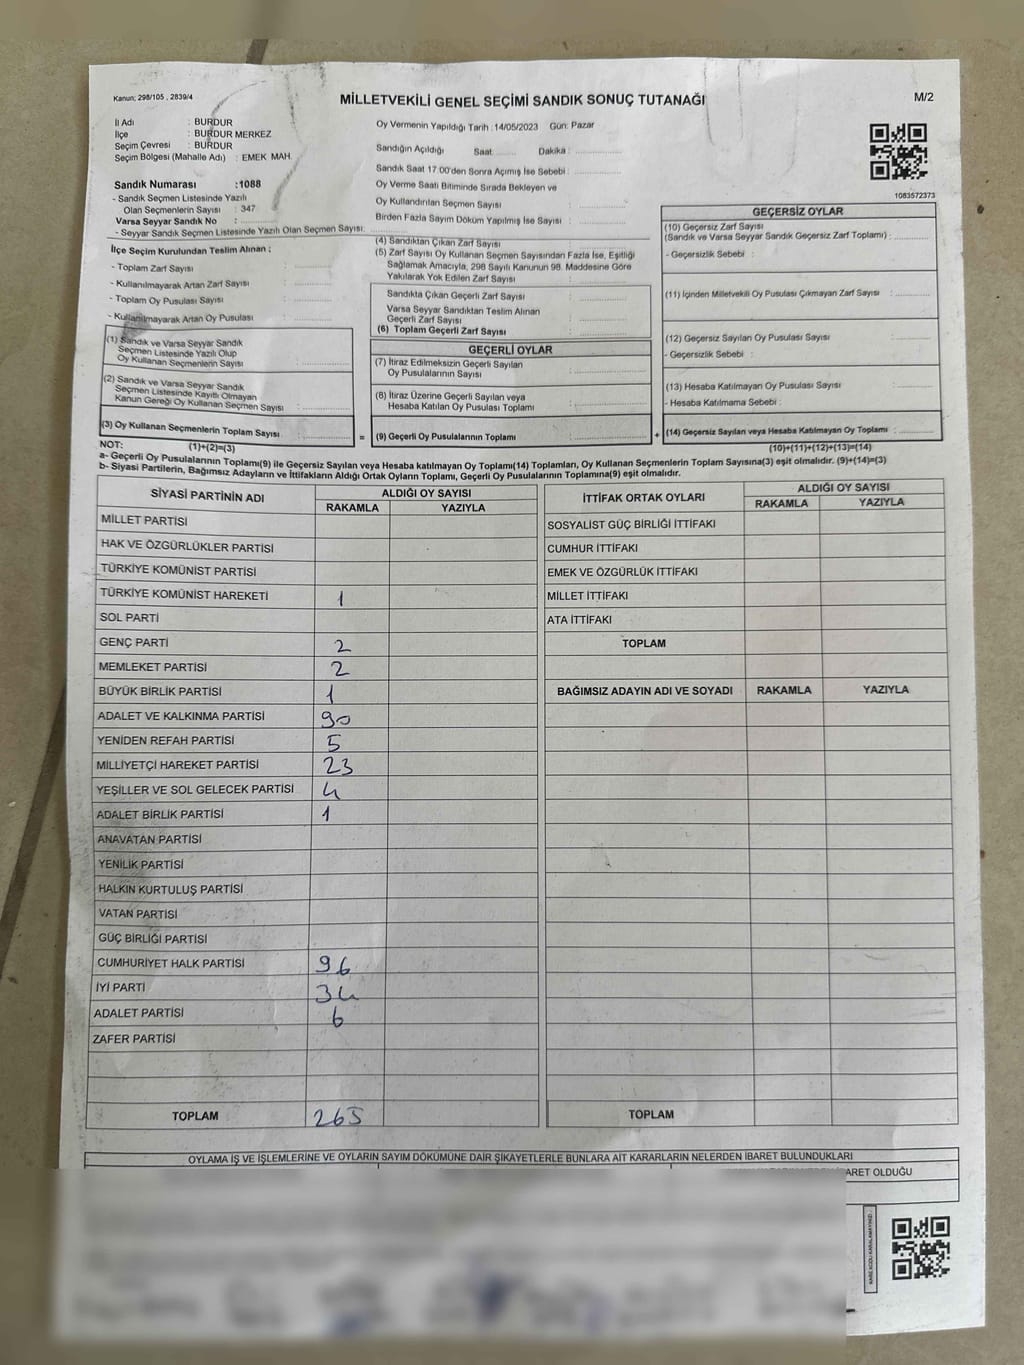 Kanun: 298/105 , 2839/4
MİLLETVEKİLİ GENEL SEÇİMİ SANDIK SONUÇ TUTANAĞI
M/2
İl Adı : BURDUR
İlçe : BURDUR MERKEZ
Seçim Çevresi : BURDUR
Seçim Bölgesi (Mahalle Adı) : EMEK MAH.
Sandık Numarası : 1088
- Sandık Seçmen Listesinde Yazılı
Olan Seçmenlerin Sayısı : 347
Varsa Seyyar Sandık No :
- Seyyar Sandık Seçmen Listesinde Yazılı Olan Seçmen Sayısı:
İlçe Seçim Kurulundan Teslim Alınan ;
- Toplam Zarf Sayısı :
- Kullanılmayarak Artan Zarf Sayısı :
- Toplam Oy Pusulası Sayısı :
- Kullanılmayarak Artan Oy Pusulası :
(1) Sandık ve Varsa Seyyar Sandık
Seçmen Listesinde Yazılı Olup
Oy Kullanan Seçmenlerin Sayısı :
(2) Sandık ve Varsa Seyyar Sandık
Seçmen Listesinde Kayıtlı Olmayan
Kanun Gereği Oy Kullanan Seçmen Sayısı :
(3) Oy Kullanan Seçmenlerin Toplam Sayısı :
(1)+(2)=(3)
Oy Vermenin Yapıldığı Tarih : 14/05/2023 Gün: Pazar
Sandığın Açıldığı Saat: Dakika :
Sandık Saat 17.00'den Sonra Açımış İse Sebebi :
Oy Verme Saati Bitiminde Sırada Bekleyen ve
Oy Kullandırılan Seçmen Sayısı :
Birden Fazla Sayım Döküm Yapılmış İse Sayısı :
(4) Sandıktan Çıkan Zarf Sayısı :
(5) Zarf Sayısı Oy Kullanan Seçmen Sayısından Fazla İse, Eşitliği
Sağlamak Amacıyla, 298 Sayılı Kanunun 98. Maddesine Göre
Yakılarak Yok Edilen Zarf Sayısı :
Sandıkta Çıkan Geçerli Zarf Sayısı :
Varsa Seyyar Sandıktan Teslim Alınan
Geçerli Zarf Sayısı :
(6) Toplam Geçerli Zarf Sayısı :
GEÇERLİ OYLAR
(7) İtiraz Edilmeksizin Geçerli Sayılan
Oy Pusulalarının Sayısı :
(8) İtiraz Üzerine Geçerli Sayılan veya
Hesaba Katılan Oy Pusulası Toplamı :
= (9) Geçerli Oy Pusulalarının Toplamı :
1083572373
GEÇERSİZ OYLAR
(10) Geçersiz Zarf Sayısı
(Sandık ve Varsa Seyyar Sandık Geçersiz Zarf Toplamı) :
- Geçersizlik Sebebi :
(11) İçinden Milletvekili Oy Pusulası Çıkmayan Zarf Sayısı :
(12) Geçersiz Sayılan Oy Pusulası Sayısı :
- Geçersizlik Sebebi :
(13) Hesaba Katılmayan Oy Pusulası Sayısı :
- Hesaba Katılmama Sebebi :
+ (14) Geçersiz Sayılan veya Hesaba Katılmayan Oy Toplamı :
(10)+(11)+(12)+(13)=(14)
NOT:
a- Geçerli Oy Pusulalarının Toplamı(9) ile Geçersiz Sayılan veya Hesaba katılmayan Oy Toplamı(14) Toplamları, Oy Kullanan Seçmenlerin Toplam Sayısına(3) eşit olmalıdır. (9)+(14)=(3)
b- Siyasi Partilerin, Bağımsız Adayların ve İttifakların Aldığı Ortak Oyların Toplamı, Geçerli Oy Pusulalarının Toplamına(9) eşit olmalıdır.
SİYASİ PARTİNİN ADI ALDIĞI OY SAYISI
RAKAMLA YAZIYLA
MİLLET PARTİSİ
HAK VE ÖZGÜRLÜKLER PARTİSİ
TÜRKİYE KOMÜNİST PARTİSİ
TÜRKİYE KOMÜNİST HAREKETİ 1
SOL PARTİ
GENÇ PARTİ 2
MEMLEKET PARTİSİ 2
BÜYÜK BİRLİK PARTİSİ 1
ADALET VE KALKINMA PARTİSİ 90
YENİDEN REFAH PARTİSİ 5
MİLLİYETÇİ HAREKET PARTİSİ 23
YEŞİLLER VE SOL GELECEK PARTİSİ 4
ADALET BİRLİK PARTİSİ 1
ANAVATAN PARTİSİ
YENİLİK PARTİSİ
HALKIN KURTULUŞ PARTİSİ
VATAN PARTİSİ
GÜÇ BİRLİĞİ PARTİSİ
CUMHURİYET HALK PARTİSİ 96
İYİ PARTİ 34
ADALET PARTİSİ 6
ZAFER PARTİSİ
TOPLAM 265
İTTİFAK ORTAK OYLARI ALDIĞI OY SAYISI
RAKAMLA YAZIYLA
SOSYALİST GÜÇ BİRLİĞİ İTTİFAKI
CUMHUR İTTİFAKI
EMEK VE ÖZGÜRLÜK İTTİFAKI
MİLLET İTTİFAKI
ATA İTTİFAKI
TOPLAM
BAĞIMSIZ ADAYIN ADI VE SOYADI RAKAMLA YAZIYLA
TOPLAM
OYLAMA İŞ VE İŞLEMLERİNE VE OYLARIN SAYIM DÖKÜMÜNE DAİR ŞİKAYETLERLE BUNLARA AİT KARARLARIN NELERDEN İBARET BULUNDUKLARI
ARET OLDUĞU